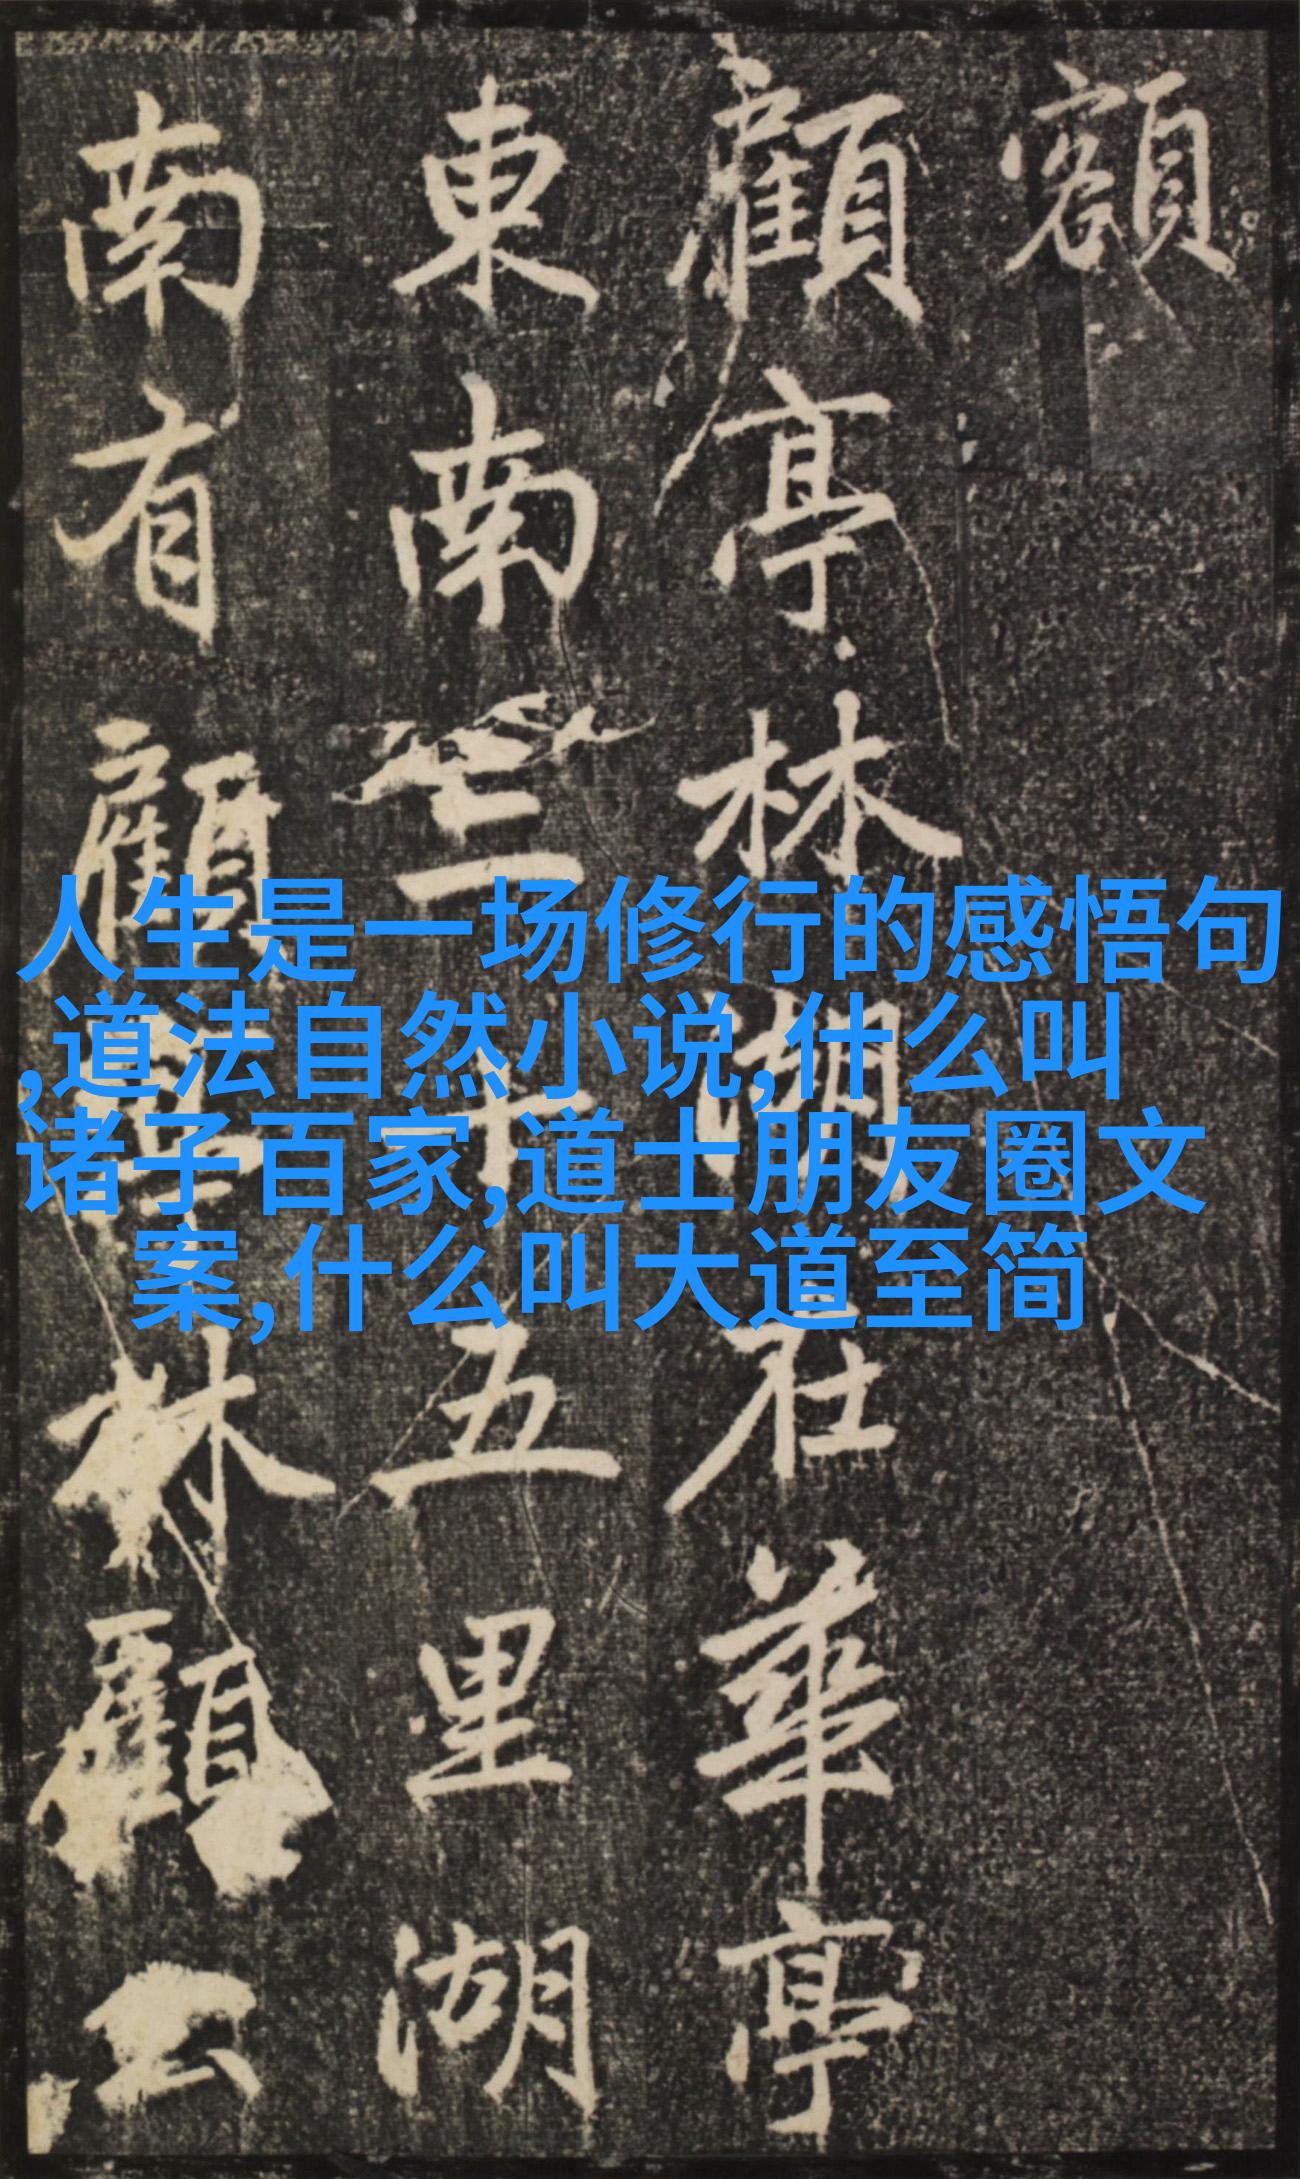 額
顧亭林湖在華亭
東南三十五里湖
南有顧亭林顧公
人生是一场修行的感悟句
,道法自然小说,什么叫
诸子百家,道士朋友圈文
案,什么叫大道至简